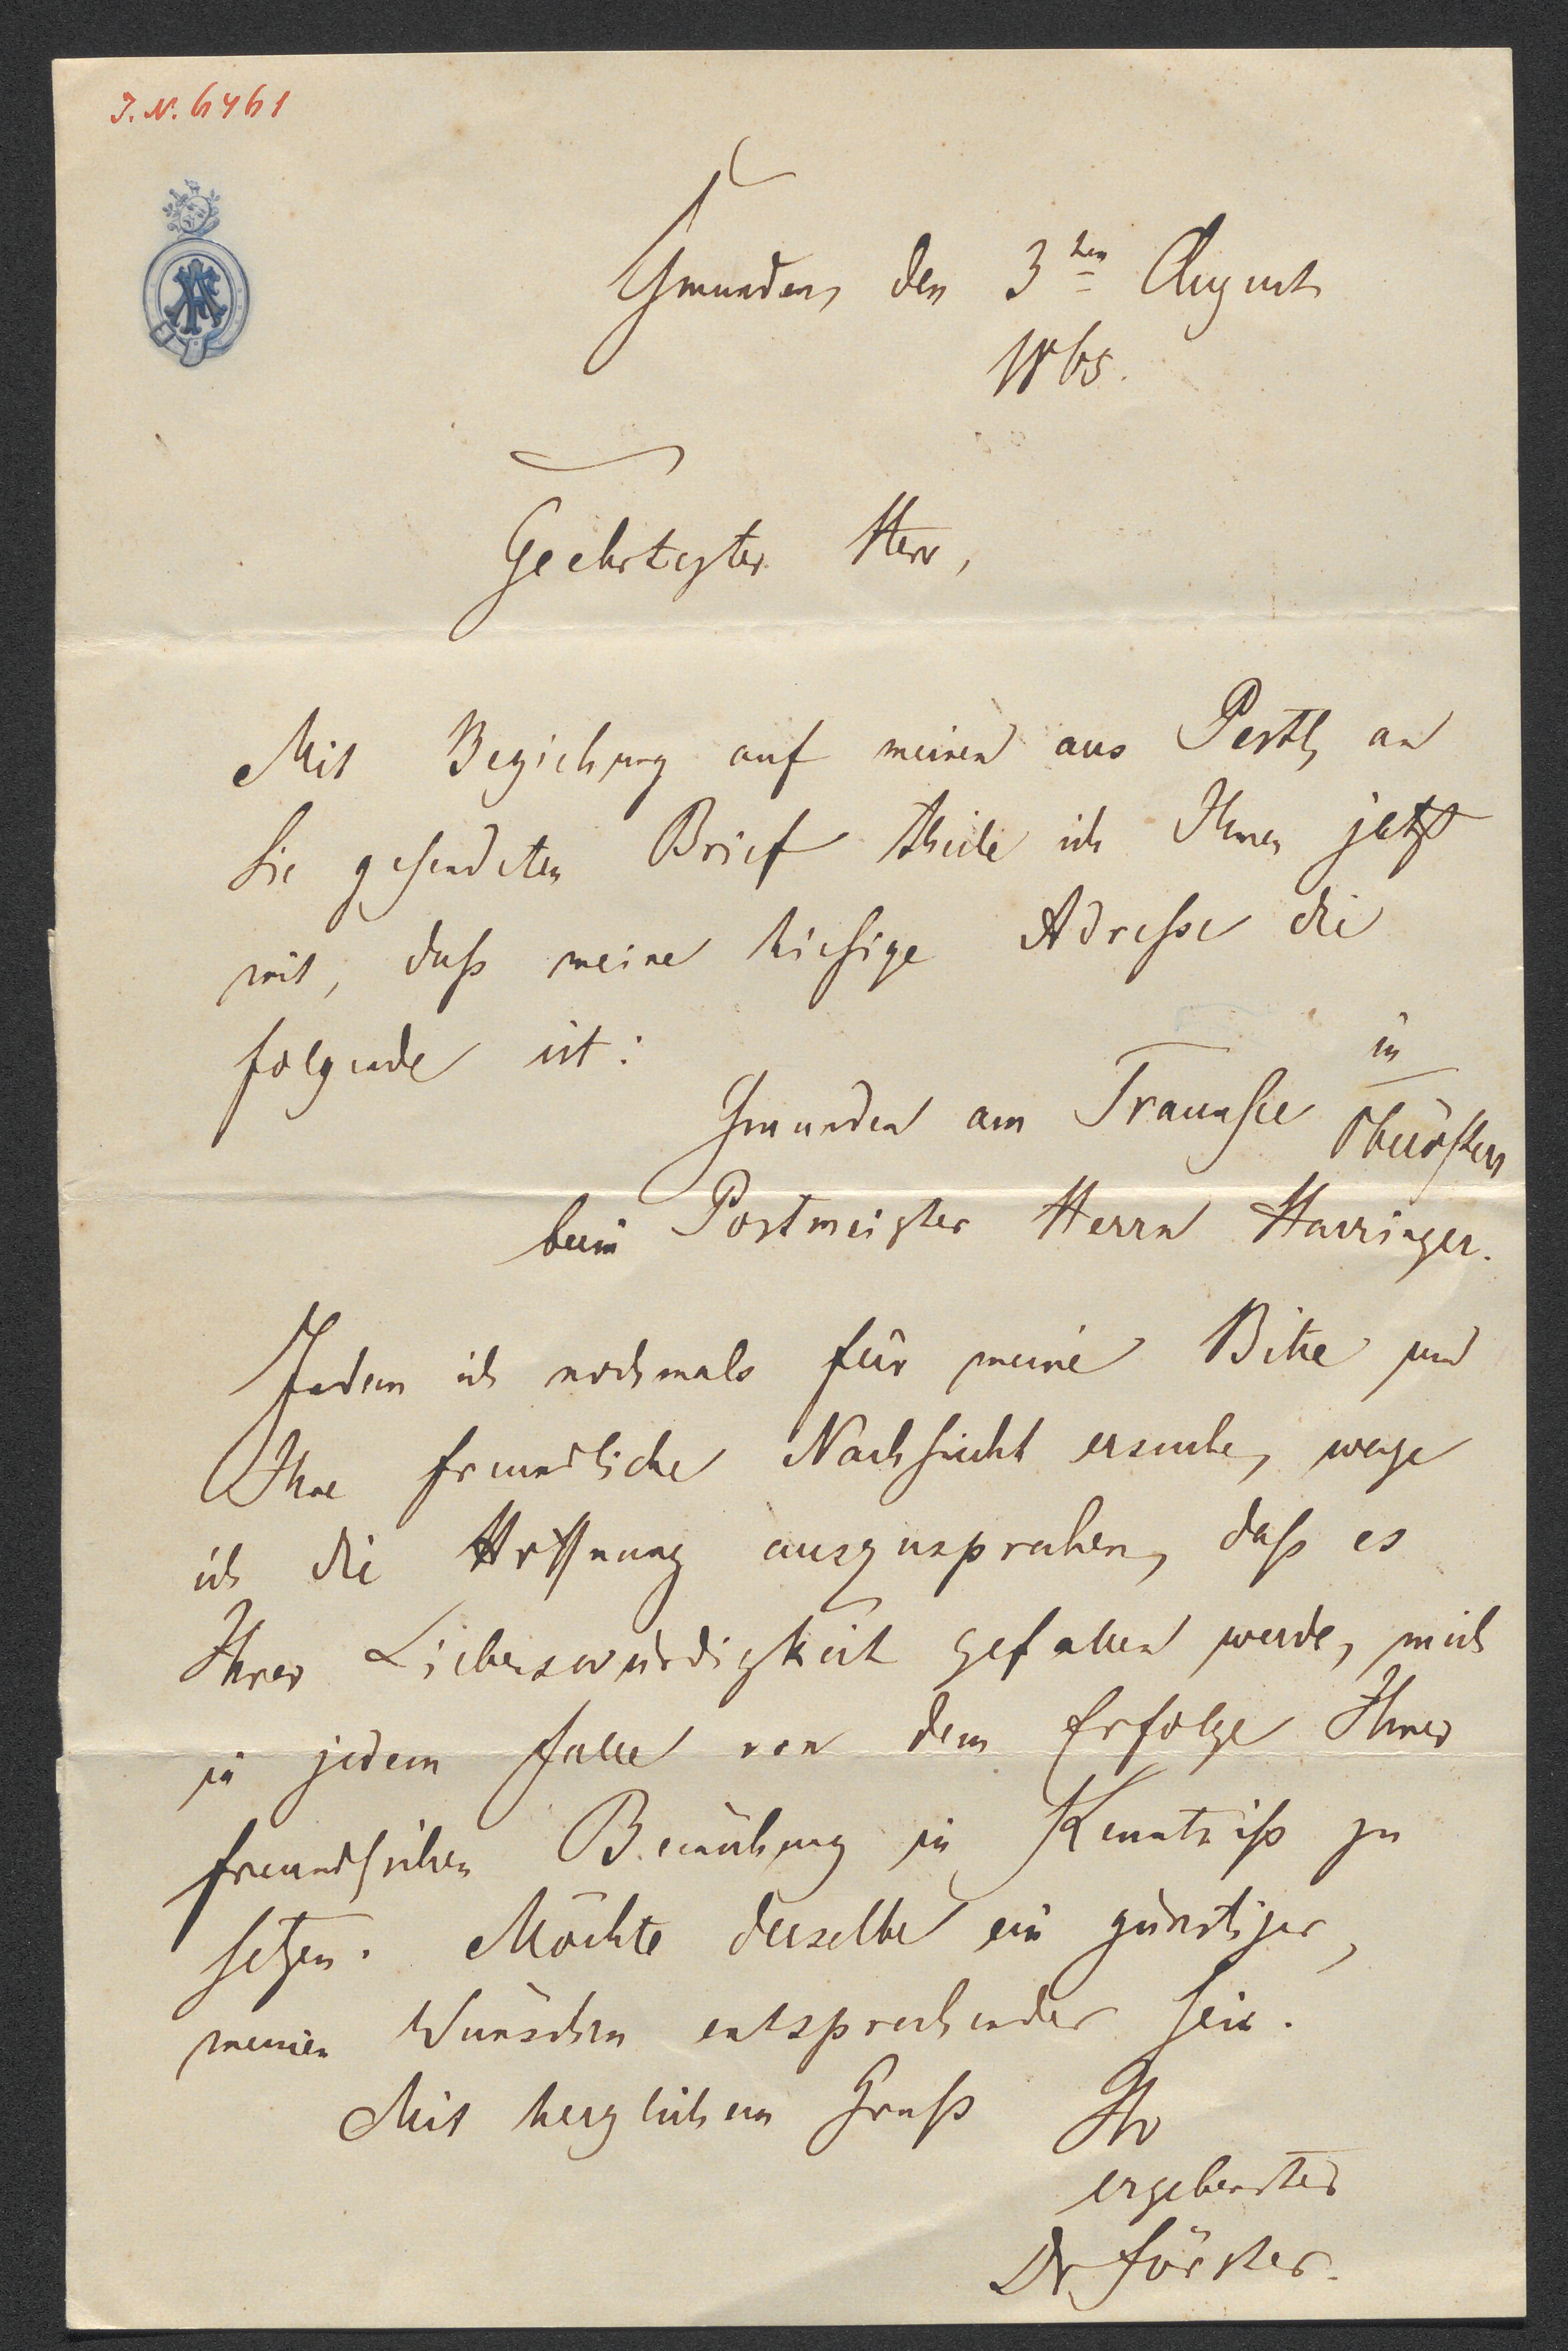 J. N. 6461
Gmunden, den 3ten August
1865.
Geehrtester Herr,
Mit Beziehung auf meinen aus Pesth an
Sie gesendeten Brief theile ich Ihnen jetzt
mit, daß meine hiesige Adresse die
folgende ist:
Gmunden am Traunsee in
beim Postmeister Herrn
Indem ich nochmals für meine Bitte um
Ihre freundliche Nachsicht ersuche, wage
ich die Hoffnung auszusprechen, daß es
Ihrer Liebenswürdigkeit gefallen werde, mich
in jedem Falle von dem Erfolge Ihrer
freundlichen Bemühung in Kenntniß zu
setzen. Möchte derselbe ein günstiger,
meinen Wünschen entsprechender sein.
Mit herzlichem Gruß Ihr
ergebenster
Dr Förster.